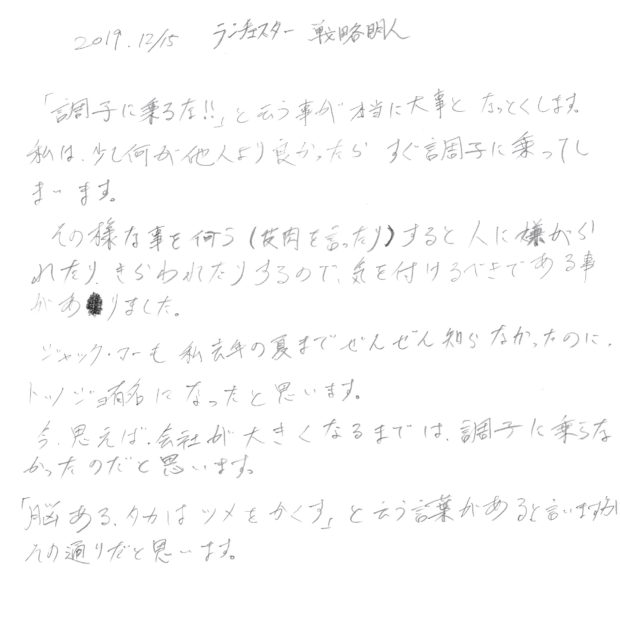 2019.12/15 ランチェスター 戦略明人
「調子に乗るな!!」と云う事が本当に大事となっとくします。
私は、少し何か他人より良かったらすぐ調子に乗ってし
まいます。
その様な事を何う(皮肉を言ったり)すると人に嫌がら
れたり、きらわれたりするので、気を付けるべきである事
があ りました。
ジャック・マーも私去年の夏までぜんぜん知らなかったのに、
トツジョ有名になったと思います。
今、思えば、会社が大きくなるまでは、調子に乗らな
かったのだと思います。
「脳ある、タカはツメをかくす」と云う言葉があると言いますが
その通りだと思います。